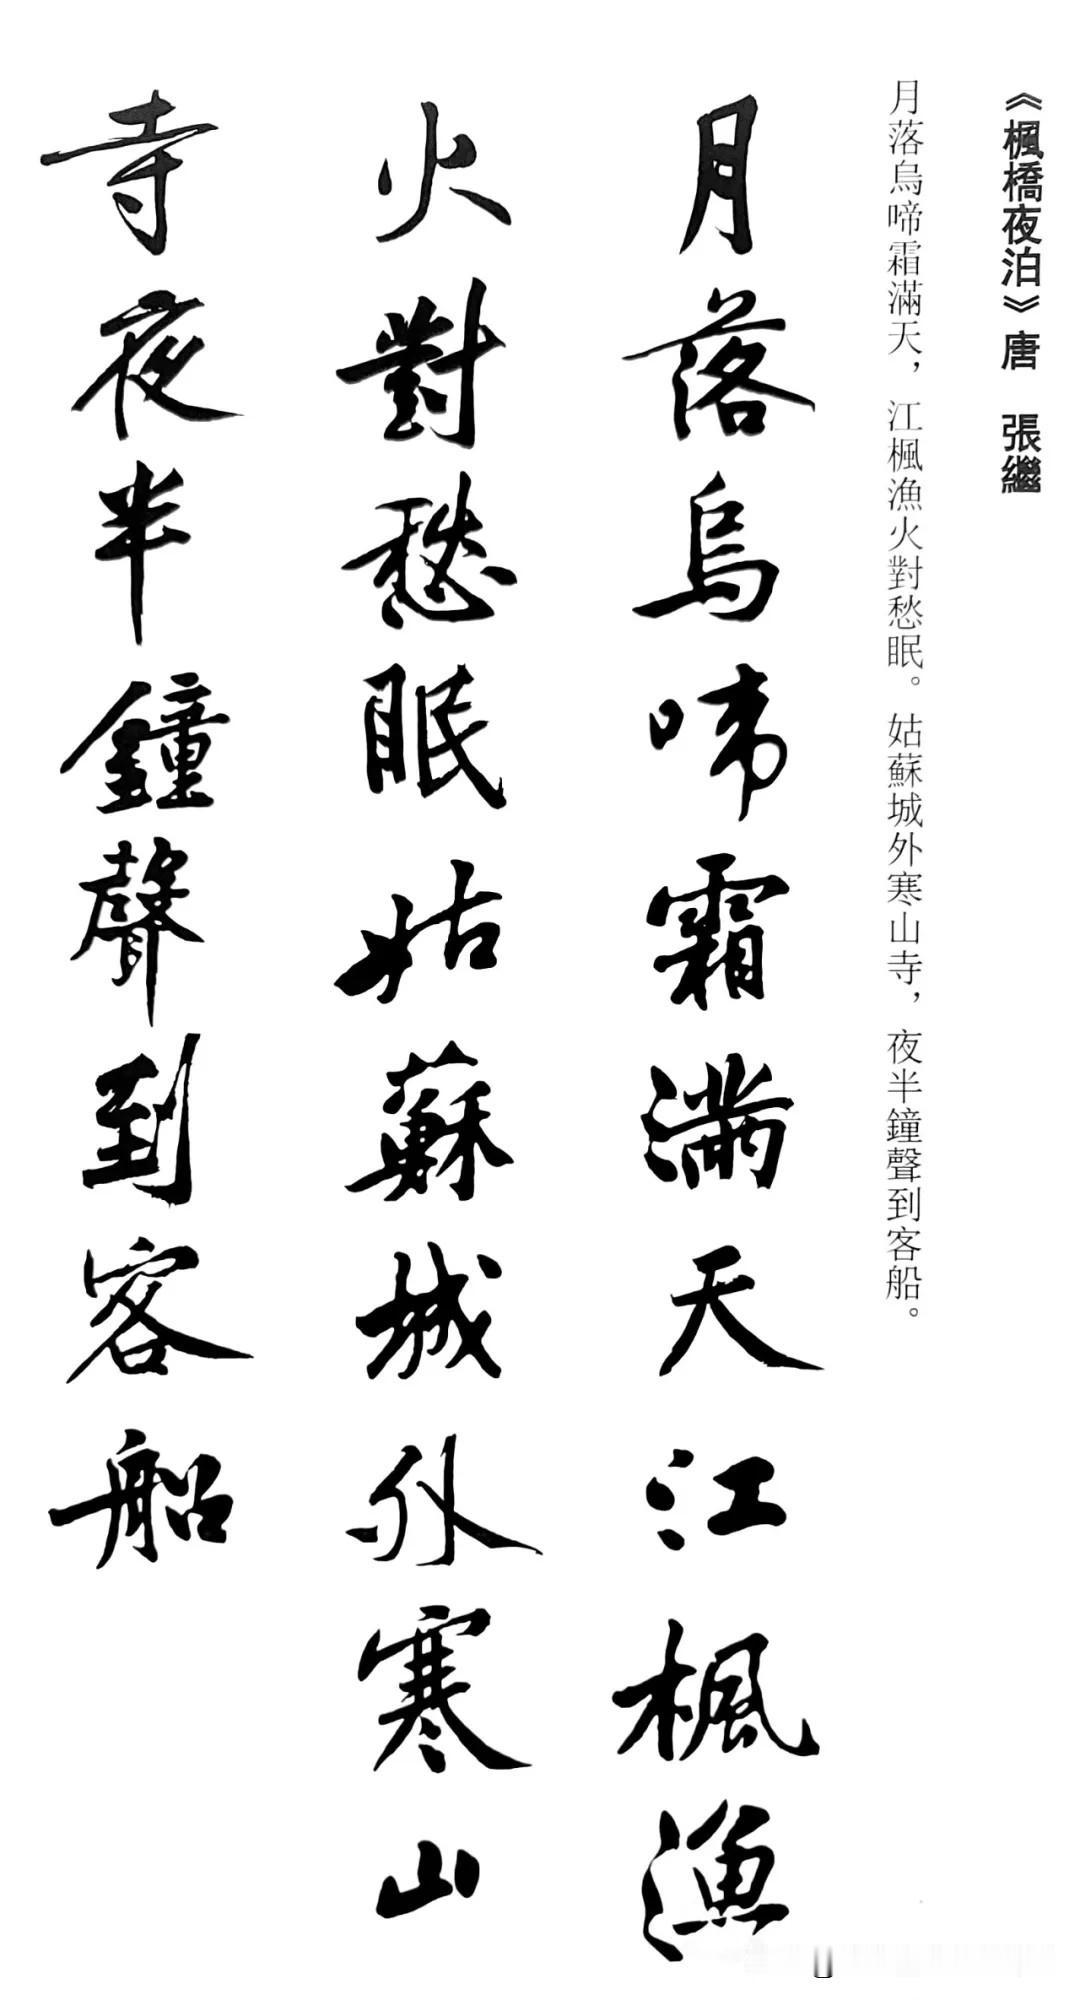 《楓橋夜泊》唐　張繼
月落烏啼霜滿天，江楓漁火對愁眠。姑蘇城外寒山寺，夜半鐘聲到客船。
月落烏啼霜滿天江楓漁
火對愁眠姑蘇城外寒山
寺夜半鐘聲到客船